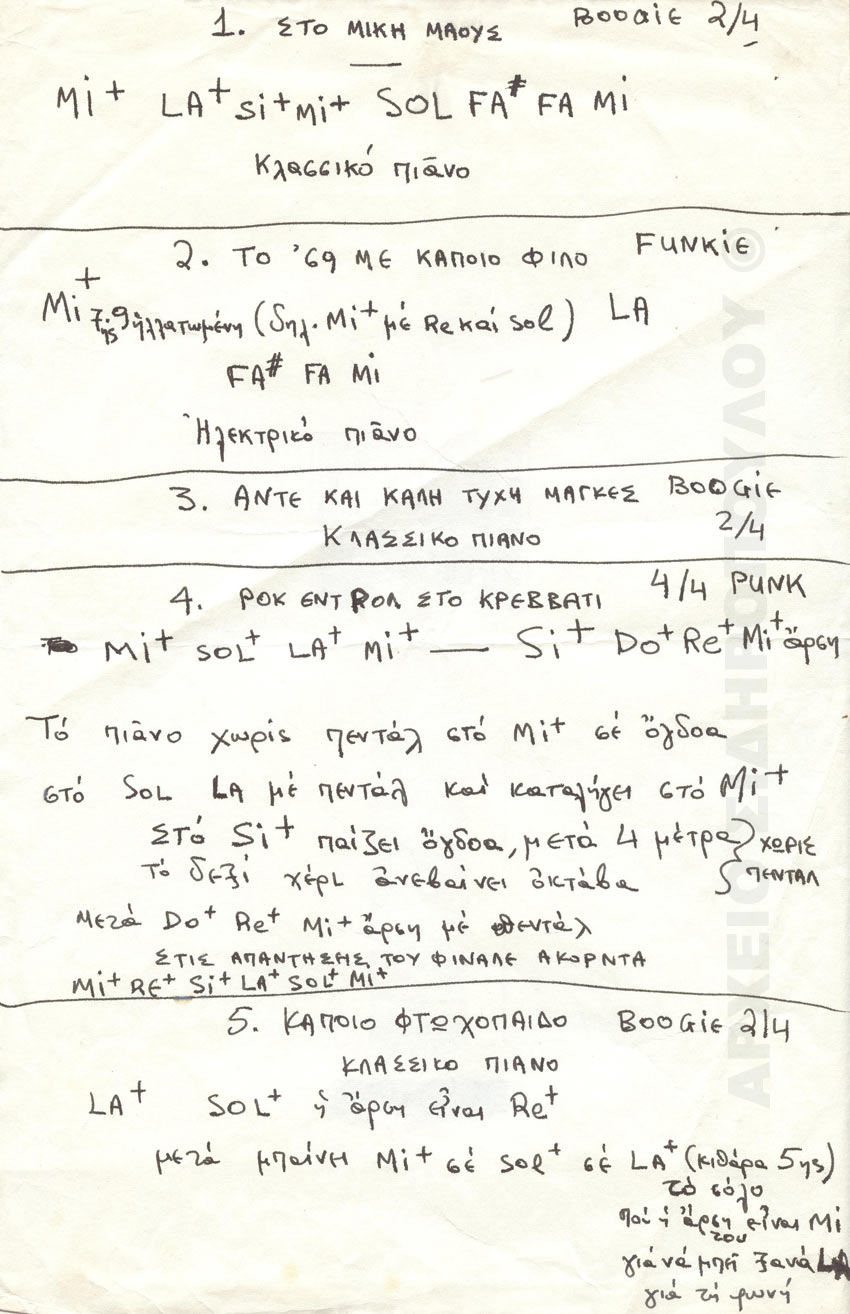 1. ΣΤΟ ΜΙΚΗ ΜΑΟΥΣ BOOGIE 2/4
Mi+ LA+ Si+ Mi+ SOL FA# FA Mi
Κλασσικό πιᾶνο
2. ΤΟ '69 ΜΕ ΚΑΠΟΙΟ ΦΙΛΟ FUNKIE
Mi+ 7ης 9 ἠλλατωμένη (δηλ. Mi+ μέ Re καί Sol) LA
FA# FA Mi
Ἠλεκτρικό πιᾶνο
3. ΑΝΤΕ ΚΑΙ ΚΑΛΗ ΤΥΧΗ ΜΑΓΚΕΣ BOOGIE
ΚΛΑΣΣΙΚΟ ΠΙΑΝΟ 2/4
4. ΡΟΚ ΕΝΤ ΡΟΛ ΣΤΟ ΚΡΕΒΒΑΤΙ 4/4 PUNK
Mi+ SOL+ LA+ Mi+ — Si+ Do+ Re+ Mi+ ἄρση
Τό πιᾶνο χωρίς πεντάλ στό Mi+ σέ ὄγδοα
στό SOL LA μέ πεντάλ καί καταλήγει στό Mi+
ΣΤΟ Si+ παίζει ὄγδοα, μετά 4 μέτρα } ΧΩΡΙΣ
τό δεξί χέρι ἀνεβαίνει ὀκτάβα } ΠΕΝΤΑΛ
μετά Do+ Re+ Mi+ ἄρση μέ πεντάλ
ΣΤΙΣ ΑΠΑΝΤΗΣΗΣ ΤΟΥ ΦΙΝΑΛΕ ΑΚΟΡΝΤΑ
Mi+ RE+ Si+ LA+ SOL+ Mi+
5. ΚΑΠΟΙΟ ΦΤΩΧΟΠΑΙΔΟ BOOGIE 2/4
ΚΛΑΣΣΙΚΟ ΠΙΑΝΟ
LA+ SOL+ ἡ ἄρση εἶναι Re+
μετά μπαίνει Mi+ σέ Sol+ σέ LA+ (κιθάρα 5ης)
τό σόλο
πού ἡ ἄρση του εἶναι Mi
γιά νά μπεῖ ξανά LA
γιά τή φωνή
ΑΡΧΕΙΟ Σ. ΣΙΔΗΡΟΠΟΥΛΟΥ ©